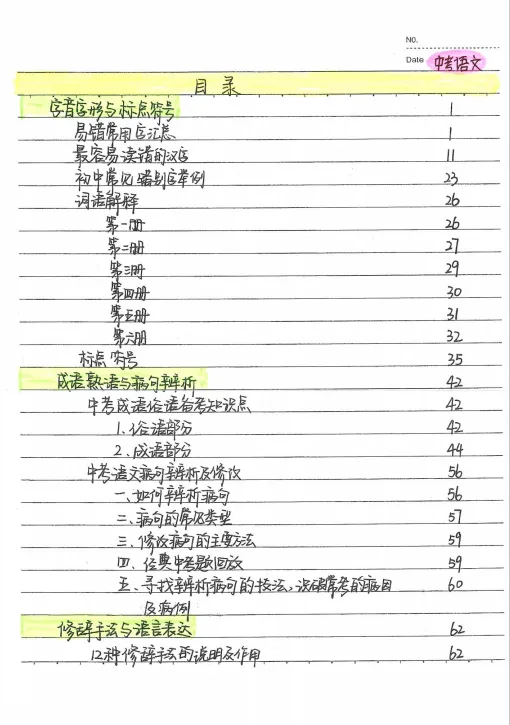 No.
Date 中考语文
目录
字音字形与标点符号 1
易错常用字汇总 1
最容易读错的汉字 11
初中常见错别字举例 23
词语解释 26
第一册 26
第二册 27
第三册 29
第四册 30
第五册 31
第六册 32
标点符号 35
成语熟语与病句辨析 42
中考成语俗语备考知识点 42
1、俗语部分 42
2、成语部分 44
中考语文病句辨析及修改 56
一、如何辨析病句 56
二、病句的常见类型 57
三、修改病句的主要方法 59
四、经典中考题回放 59
五、寻找辨析病句的技法，说明常考的病因 60
及病例
修辞手法与语言表达 62
12种修辞手法的说明及作用 62